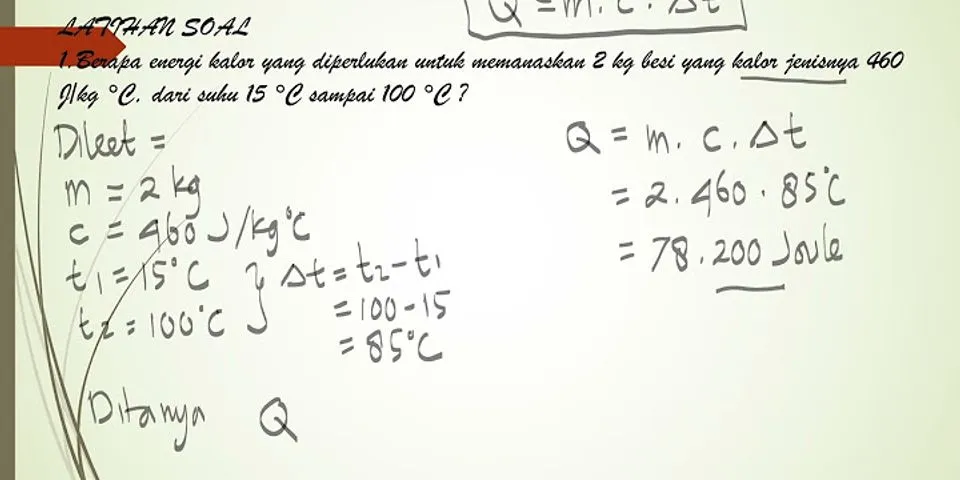 Q = m. c. Δt
LATIHAN SOAL
1. Berapa energi kalor yang diperlukan untuk memanaskan 2 kg besi yang kalor jenisnya 460
J/kg °C. dari suhu 15 °C sampai 100 °C ?
Diket =
m = 2 kg
c = 460 J/kg°C
t1 = 15°C } Δt = t2 - t1
t2 = 100°C = 100 - 15
= 85°C
Ditanya Q
Q = m. c. Δt
= 2. 460. 85°C
= 78.200 Joule